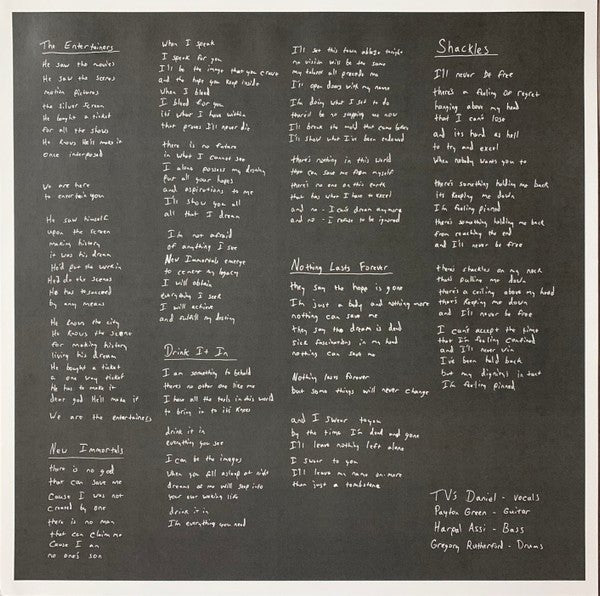 The Entertainers
He saw the movies
He saw the scenes
motion pictures
the silver screen
He bought a ticket
for all the shows
He knows He'll make it
once interposed
We are here
to entertain you
He saw himself
upon the screen
making history
it was his dream
He'd put the work in
He'd do the scenes
He has to succeed
by any means
He knows the city
He knows the scene
for making history
living his dream
He bought a ticket
a one way ticket
He has to make it
dear god He'll make it
We are the entertainers
New Immortals
there is no god
that can save me
Cause I was not
created by one
there is no man
that can claim me
Cause I am
no one's son
When I speak
I speak for you
I'll be the image that you crave
and the hope you keep inside
When I bleed
I bleed for you
its what I have within
that proves I'll never die
there is no future
in what I cannot see
I alone possess my destiny
Put all your hopes
and aspirations to me
I'll show you all
all that I dream
I'm not afraid
of anything I see
New Immortals emerge
to cement my legacy
I will obtain
everything I seek
I will achieve
and fulfill my destiny
Drink It In
I am something to behold
theres no other one like me
I have all the tools in this world
to bring it to its knees
drink it in
everything you see
I can be the images
When you fall asleep at night
dreams of me will seep into
your ever waking life
drink it in
I'm everything you need
I'll set this town ablaze tonight
no vision will be the same
my talents all precede me
I'll open doors with my name
I'm doing what I set to do
there'd be no stopping me now
I'll break the mold that came before
I'll show what I've been endowed
there's nothing in this world
that can save me from myself
there's no one on this earth
that has what I have to excel
and no - I can't dream anymore
and no - I refuse to be ignored
Nothing Lasts Forever
they say the hope is gone
I'm just a body and nothing more
nothing can save me
they say the dream is dead
sick fascinations in my head
nothing can save me
Nothing lasts forever
but some things will never change
and I swear to you
by the time I'm dead and gone
I'll leave nothing left alone
I swear to you
I'll leave my name on more
than just a tombstone
Shackles
I'll never be free
there's a feeling of regret
hanging above my head
that I can't lose
and its hard as hell
to try and excel
When nobody wants you to
there's something holding me back
its keeping me down
I'm feeling pinned
there's something holding me back
from reaching the end
and I'll never be free
theres shackles on my neck
that's pulling me down
there's a ceiling above my head
that's keeping me down
and I'll never be free
I can't accept the times
that I'm feeling confined
and I'll never win
I've been held back
but my dignity's in tact
I'm feeling pinned
TVs Daniel - vocals
Payton Green - Guitar
Harpal Assi - Bass
Gregory Rutherford - Drums